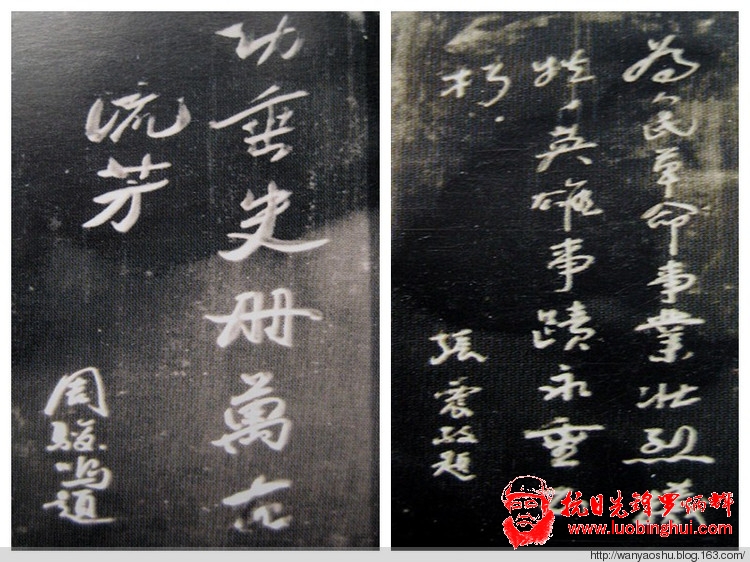 功垂史册萬古
流芳
周駿鸣题
為人民革命事業壮烈犧
牲,英雄事蹟永垂不
朽.
張震敬题
抗日先锋罗炳辉
www.luobinghui.com
http://wanyaoshu.blog.163.com/